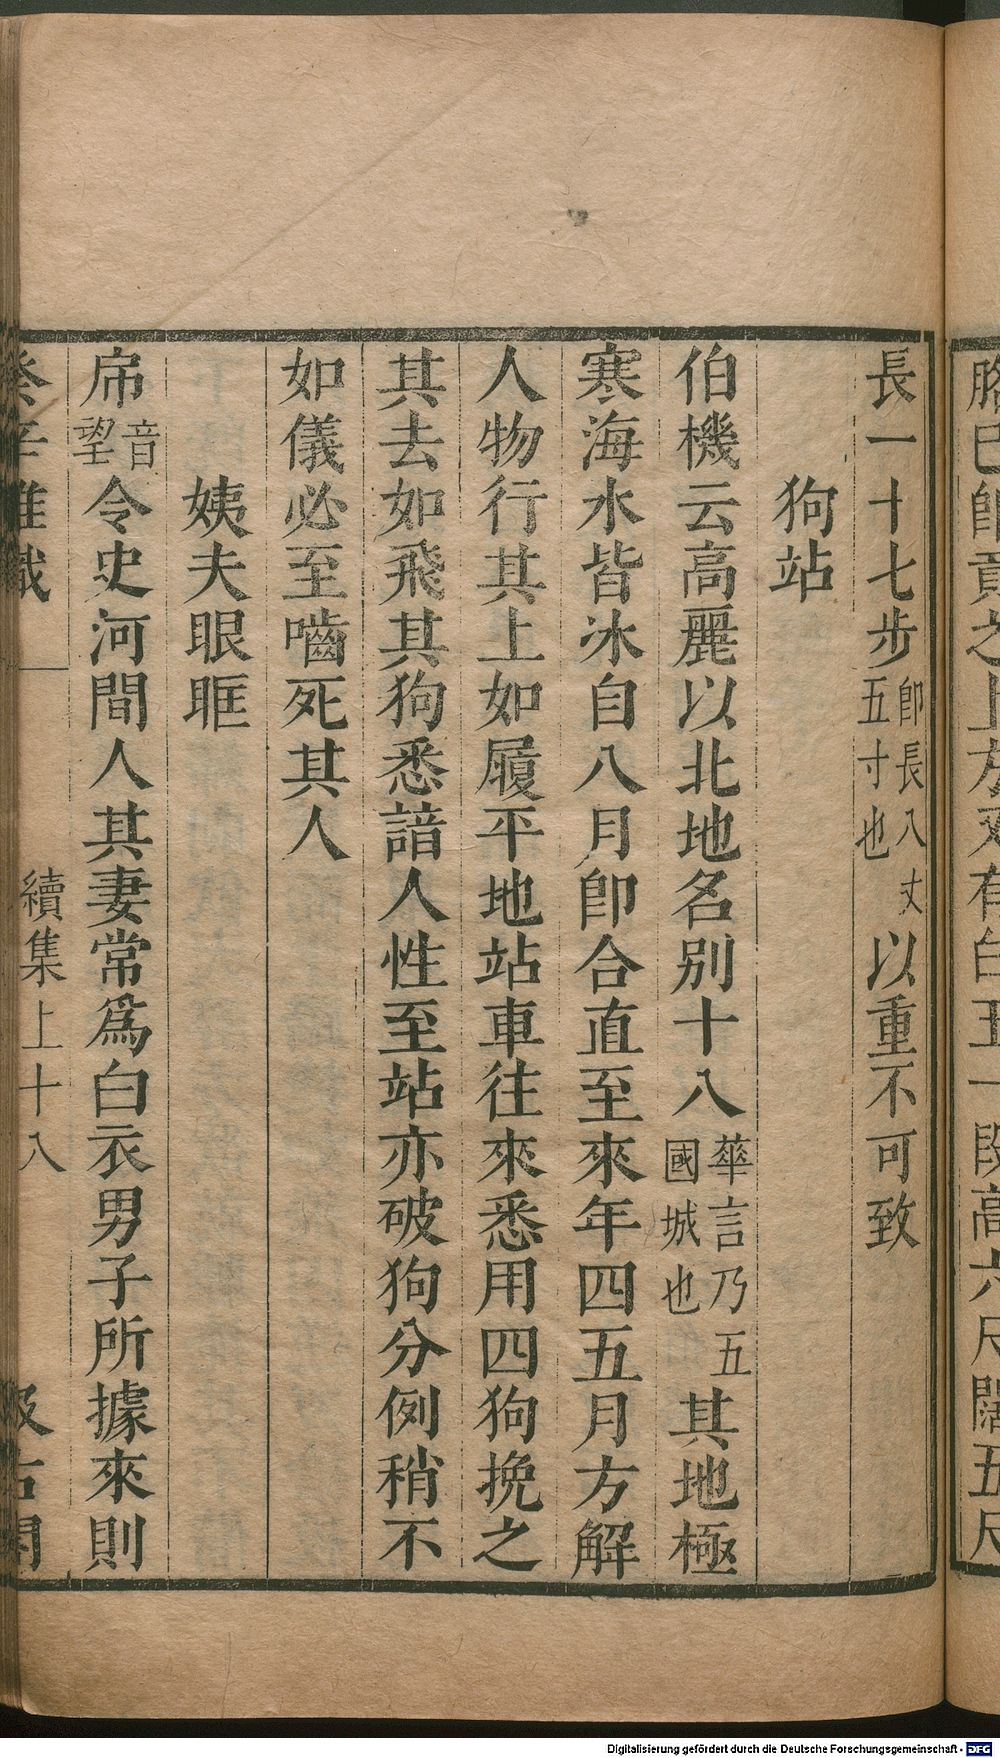 長一十七步卽長八丈五寸也以重不可致
狗站
伯機云高麗以北地名別十八華言乃五國城也其地極
寒海水皆氷自八月卽合直至來年四五月方解
人物行其上如履平地站車往來悉用四狗挽之
其去如飛其狗悉諳人性至站亦破狗分例稍不
如儀必至嚙死其人
姨夫眼眶
帍音望令史河間人其妻常爲白衣男子所據來則
續集上十八
Digitalisierung gefördert durch die Deutsche Forschungsgemeinschaft - DFG